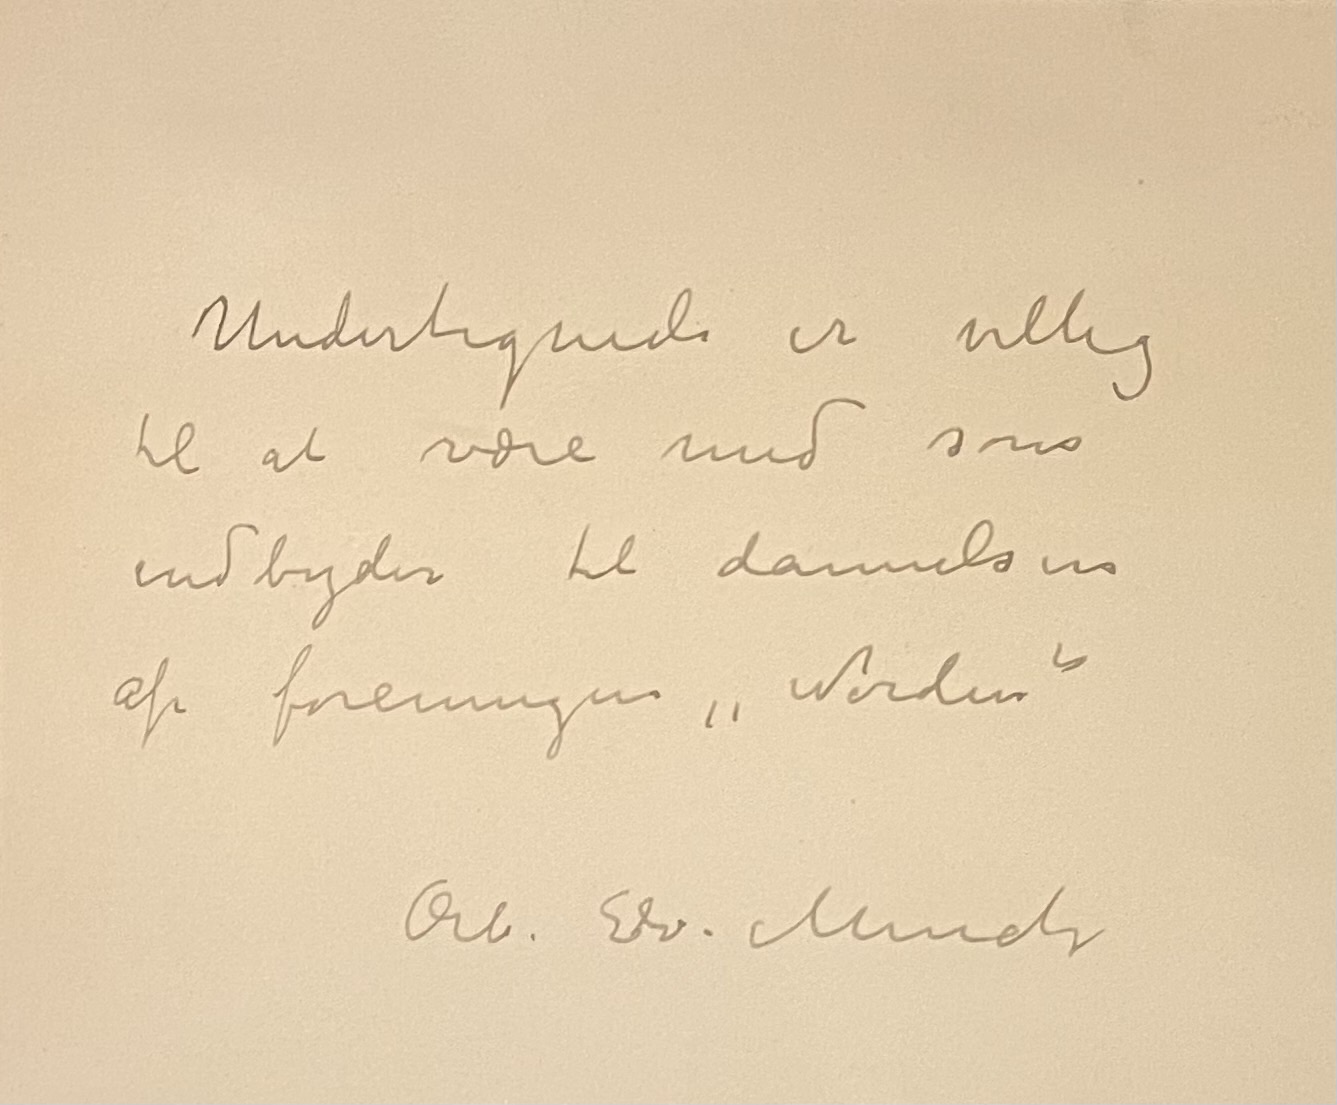 Undertegnede er villig
til at være med som
indbyder til dannelsen
af foreningen „Norden"
Erb. Edv. Munch